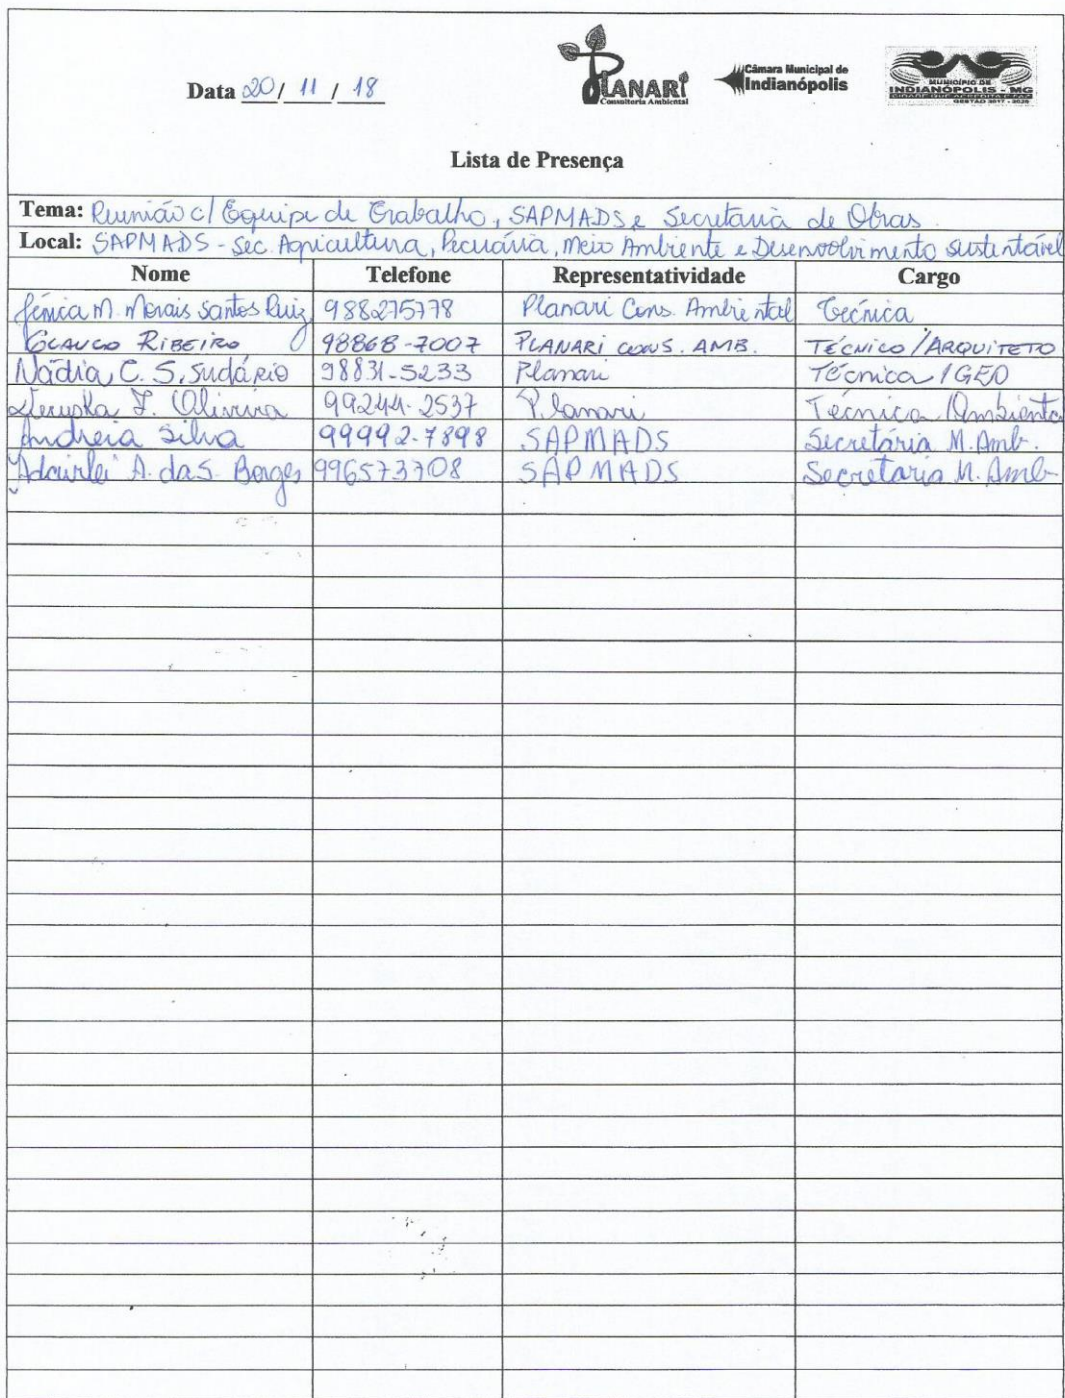 Data 20/ 11 / 18
PLANARI
Consultoria Ambiental
Câmara Municipal de
Indianópolis
MUNICÍPIO DE
INDIANÓPOLIS - MG
Lista de Presença
Tema: Reunião c/ Equipe de Trabalho, SAPMADS e Secretaria de Obras.
Local: SAPMADS - Sec. Agricultura, Pecuária, Meio Ambiente e Desenvolvimento sustentável
Nome Telefone Representatividade Cargo
M. Morais Santos Ruiz 988275778 Planari Cons. Ambiental Técnica
GLAUCO RIBEIRO 98868-7007 PLANARI CONS. AMB. TÉCNICO/ARQUITETO
Nádia C. S. Sudário 98831-5233 Planari Técnica /GEO
Oliveira 99244-2537 Planari Técnica Ambiental
Andreia Silva 99992-7898 SAPMADS Secretária M. Amb.
A. da S. Borges 996573708 SAPMADS Secretaria M. Amb